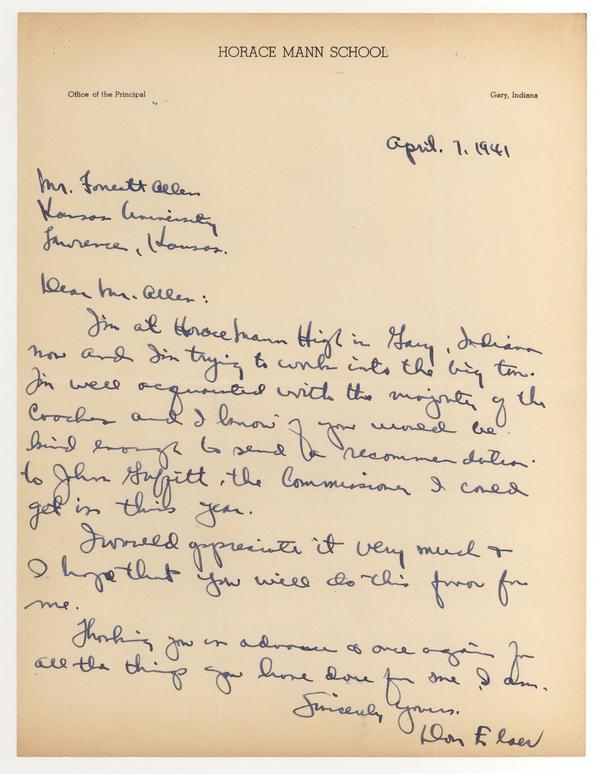 HORACE MANN SCHOOL
Office of the Principal
Gary, Indiana
April. 7, 1941
Mr. Forrestt Allen
Kansas University
Lawrence, Kansas.
Dear Mr. Allen:
I'm at Horace Mann High in Gary, Indiana
now and I'm trying to work into the big ten.
I'm well acquainted with the majority of the
Coaches and I know if you would be
kind enough to send a recommendation
to John Griffitt, the Commissioner I could
get in this year.
I would appreciate it very much &
I hope that you will do this favor for
me.
Thanking you in advance & once again for
all the things you have done for me, I am.
Sincerely Yours.
Don Elser